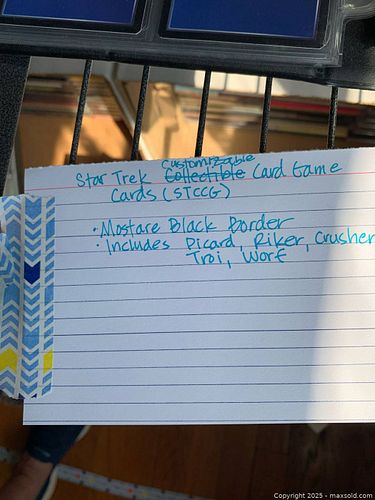 Customizable
Star Trek Collectible Card Game
Cards (STCCG)
• Mostare Black Border
• Includes Picard, Riker, Crusher
Troi, Worf
Copyright 2025 - maxsold.com